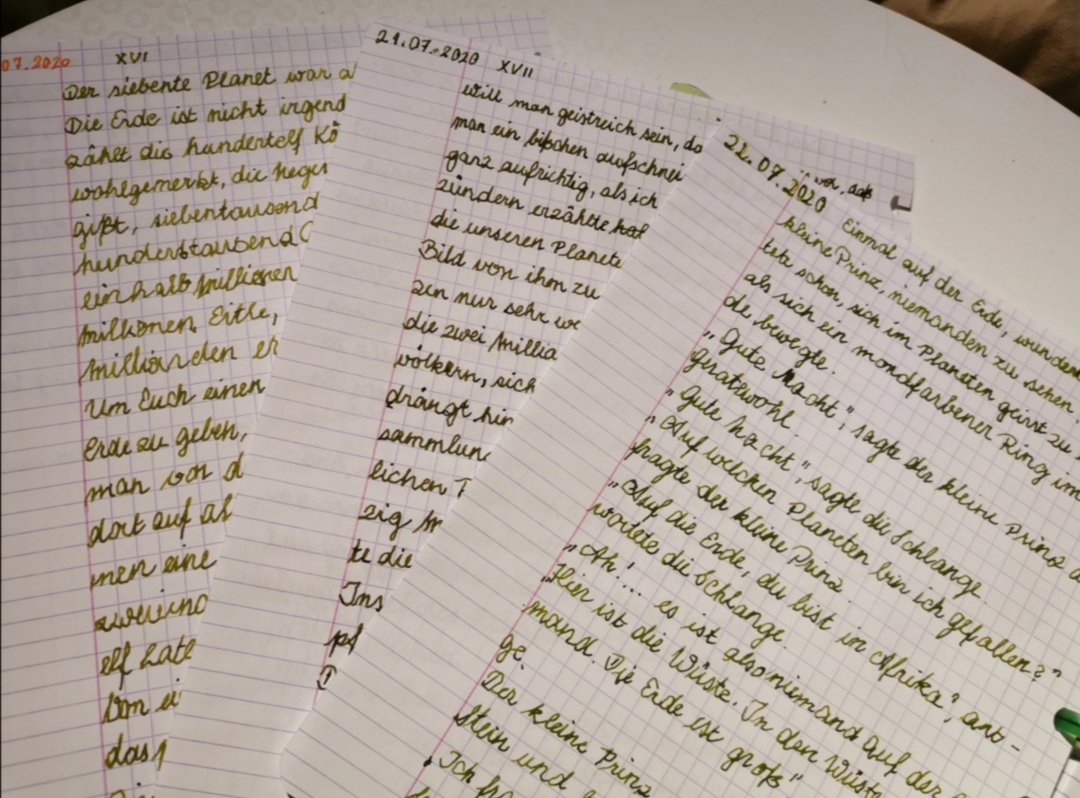 07.2020 XVI
Der siebente Planet war a
Die Erde ist nicht irgend
zählt die hundertelf Kö
wohlgemerkt, die Neger
gißt, siebentausend
hunderttausend
einhalb Millionen
Millionen Eitle,
Milliarden er
Um Euch einen
Erde zu geben,
man vor d
dort auf al
men eine
zweiund
elf
Von ei
das
21.07.2020 XVII
Will man geistreich sein, da
man ein bißchen aufschnei
ganz aufrichtig, als ich
zündern erzählte hab
die unseren Planete
Bild von ihm zu
zen nur sehr we
die zwei Millia
völkern, sich
drängt hin
sammlun
lichen
zig M
te die
Ins
pf
22.07.2020
Einmal auf der Erde, wunder
kleine Prinz, niemanden zu sehen.
tete schon, sich im Planeten geirrt zu
als sich ein mondfarbener Ring im
de bewegte.
„Gute Nacht", sagte der kleine Prinz a
geratewohl
„Gute Nacht", sagte die Schlange.
„Auf welchen Planeten bin ich gefallen?"
fragte der kleine Prinz.
„Auf die Erde, du bist in Afrika", ant-
wortete die Schlange.
„Ah!... es ist also niemand auf der
„Hier ist die Wüste. In den Wüste
mand. Die Erde ist groß"
ge.
Der kleine Prinz
Stein und
„Ich fra